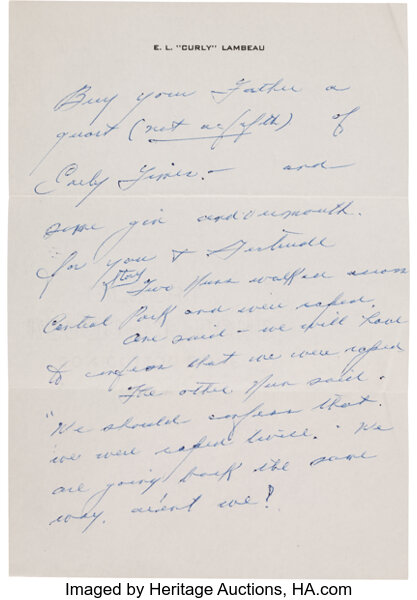 E. L. "CURLY" LAMBEAU
Buy your Father a
quart (not a fifth) of
Early Times. - and
some gin and vermouth.
for you & Gertrude
Story
Two Nuns walked across
Central Park and were raped.
One said - we will have
to confess that we were raped
The other Nun said.
"We should confess that.
we were raped twice." We
are going back the same
way. aren't we?
Imaged by Heritage Auctions, HA.com